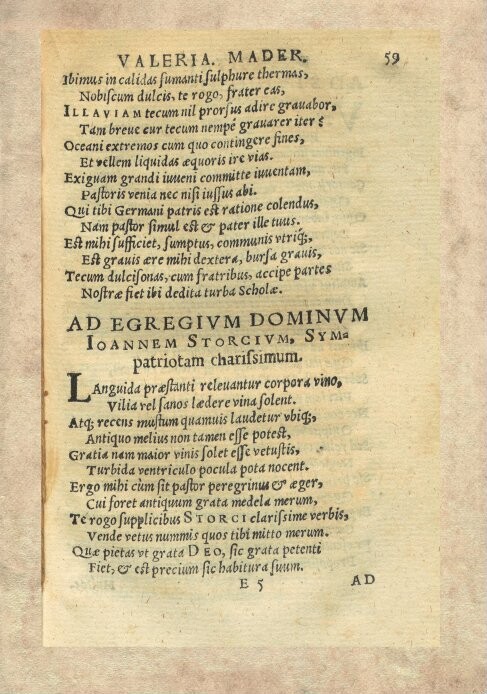 VALERIA. MADER. 59
Ibimus in calidas fumanti sulphure thermas,
Nobiscum dulcis, te rogo, frater eas,
ILLAVIAM tecum nil prorsus adire grauabor,
Tam breue cur tecum nempè grauarer iter?
Oceani extremos cum quo contingere fines,
Et vellem liquidas æquoris ire vias.
Exiguam grandi iuueni committe iuuentam,
Pastoris venia nec nisi iussus abi.
Qui tibi Germani patris est ratione colendus,
Nam pastor simul est & pater ille tuus.
Est mihi sufficiet, sumptus, communis vtriq;,
Est grauis ære mihi dextera, bursa grauis,
Tecum dulcisonas, cum fratribus, accipe partes
Nostræ fiet ibi dedita turba Scholæ.
AD EGREGIVM DOMINVM
IOANNEM STORCIVM, SYM-
patriotam charissimum.
LAnguida præstanti releuantur corpora vino,
Vilia vel sanos lædere vina solent.
Atq; recens mustum quamuis laudetur vbiq;,
Antiquo melius non tamen esse potest,
Gratia nam maior vinis solet esse vetustis,
Turbida ventriculo pocula pota nocent.
Ergo mihi cùm sit pastor peregrinus & æger,
Cui foret antiquum grata medela merum,
Te rogo supplicibus STORCI clarissime verbis,
Vende vetus nummis quos tibi mitto merum.
Quæ pietas vt grata DEO, sic grata petenti
Fiet, & est precium sic habitura suum.
E 5 AD